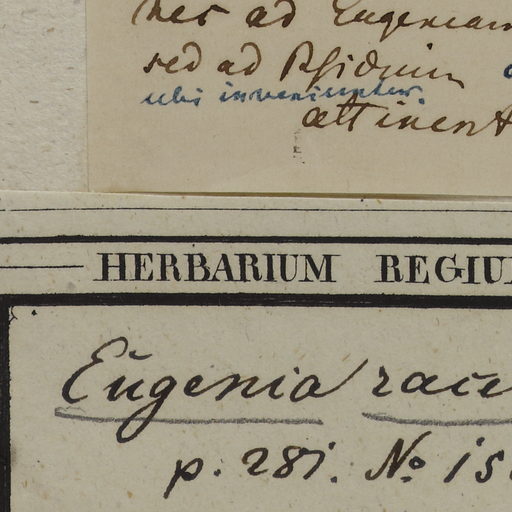 nec ad Eugeniam
sed ad Psidium
ubi inveniuntur.
attinent
HERBARIUM REGIU
Eugenia race
p. 281. No 15